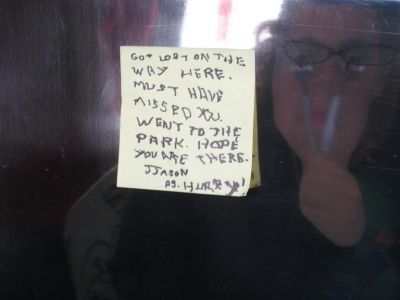 GOT LOST ON THE
WAY HERE.
MUST HAVE
MISSED YOU.
WENT TO THE
PARK. HOPE
YOU ARE THERE.
JJASON
PS. HURRY!